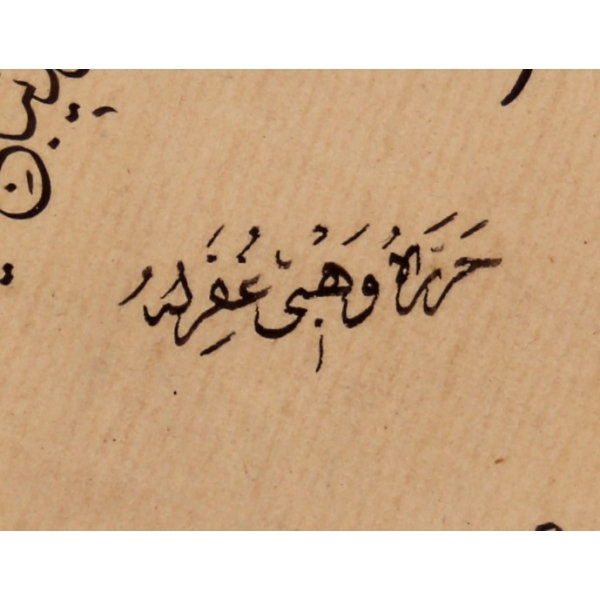 حَرَّرَهُ وَهْبِى غُفِرَ لَهُ